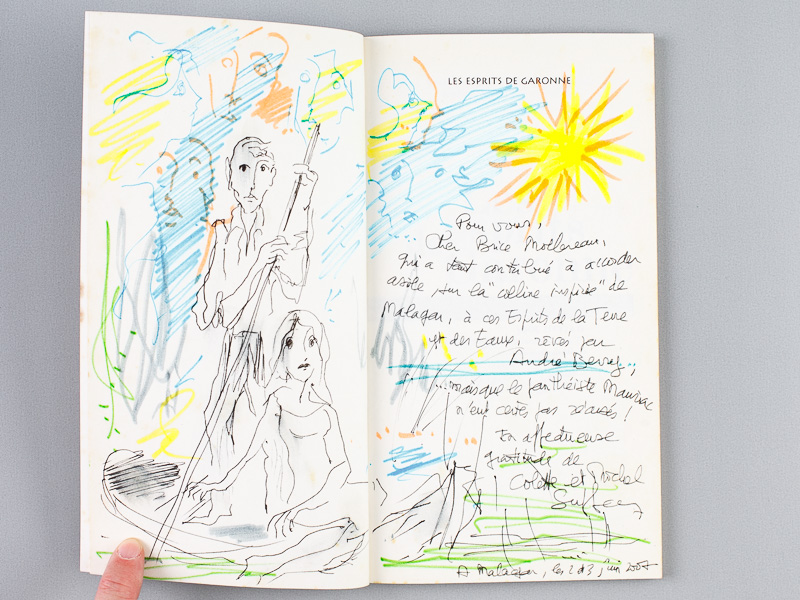 LES ESPRITS DE GARONNE
Pour vous,
Cher Brice
qui a tant contribué à accorder
asile, sur la "colline inspirée" de
Malagar, à ces Esprits de la Terre
et des Eaux, rêvés par
André
... mais que le panthéiste Mauriac
n'eut certes pas récusés !
En affectueuse
gratitude de
Colette et Michel
Suffran
A Malagar, les 2 et 3 juin 2007